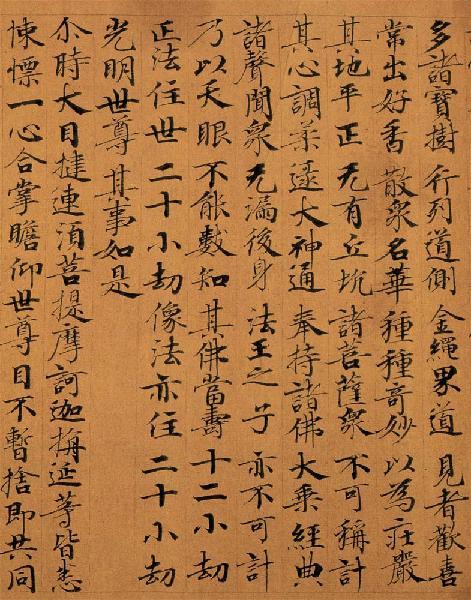 多諸寶樹 行列道側 金繩界道 見者歡喜
常出好香 散衆名華 種種奇妙 以為莊嚴
其地平正 无有丘坑 諸菩薩衆 不可稱計
其心調柔 逮大神通 奉持諸佛 大乘經典
諸聲聞衆 无漏後身 法王之子 亦不可計
乃以天眼 不能數知 其佛當壽 十二小劫
正法住世 二十小劫 像法亦住 二十小劫
光明世尊 其事如是
尒時大目揵連須菩提摩訶迦栴延等皆悉
悚慄一心合掌瞻仰世尊目不暫捨即共同